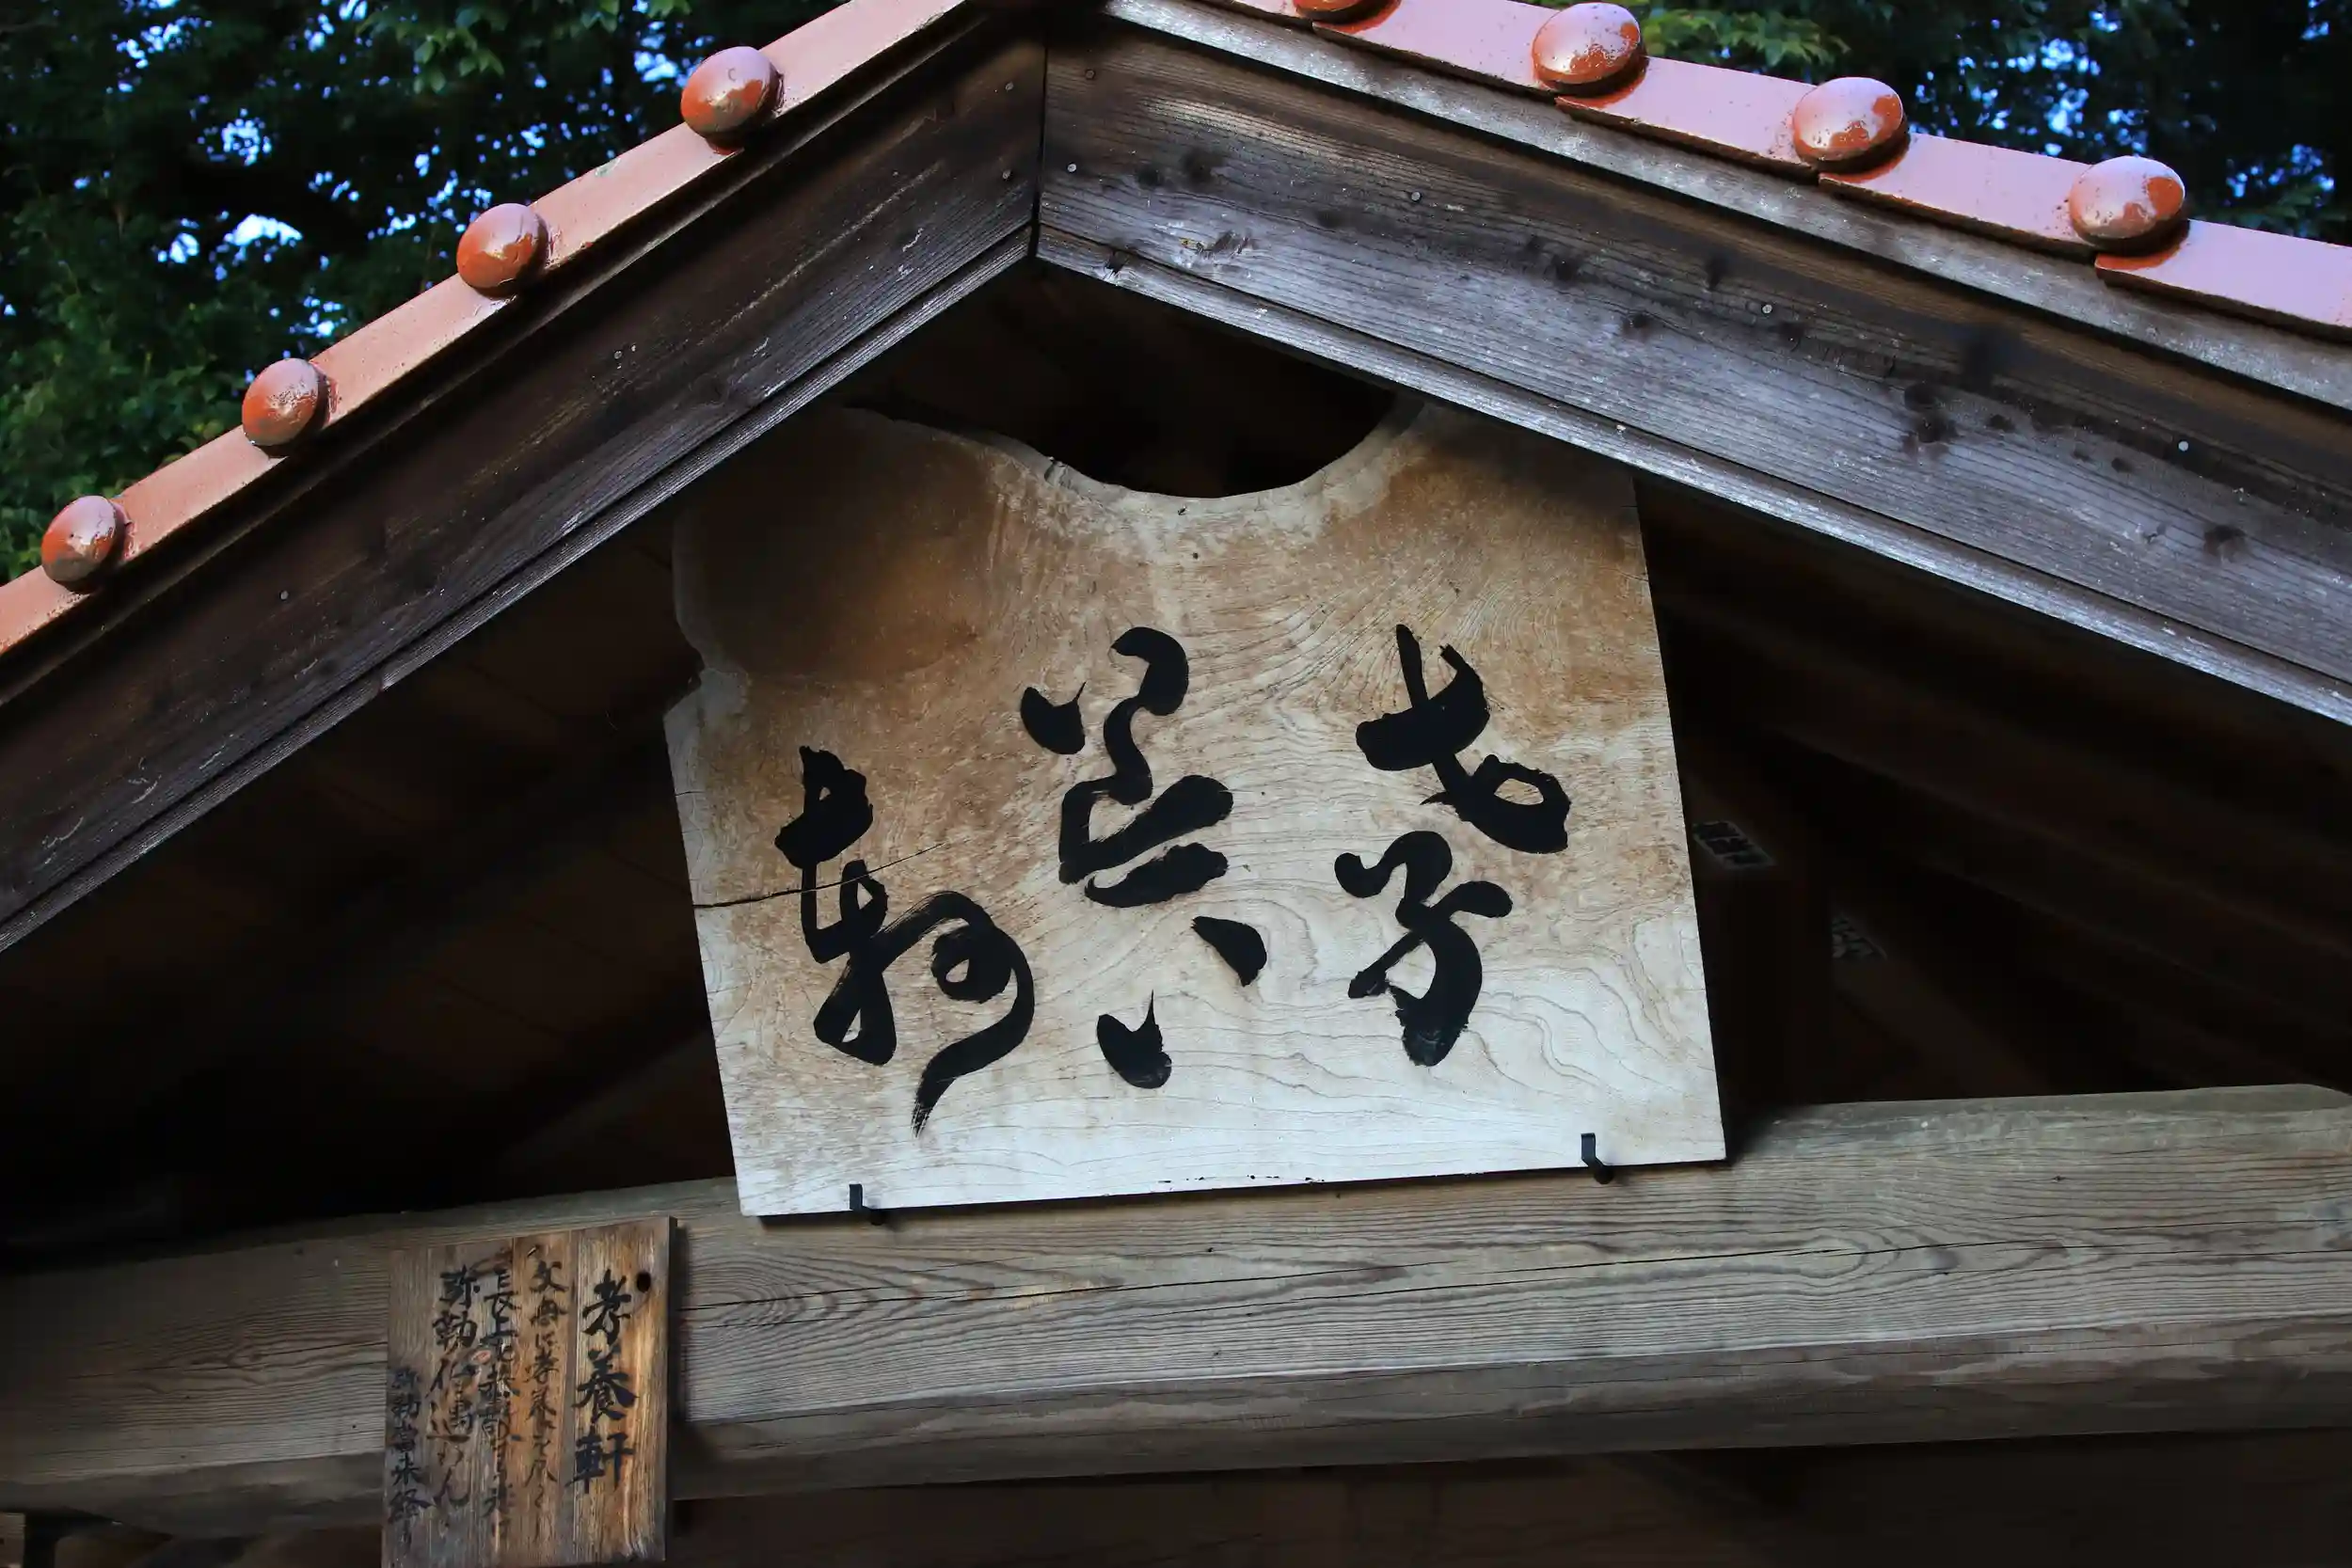 孝養軒
孝養軒
父母に孝養を尽くし
長上を恭敬する者は
弥勒に遇わん
弥勒当来経より